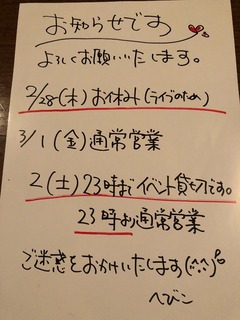 お知らせです
よろしくお願いいたします。
2/28(木)お休み(ライブのため)
3/1(金)通常営業
2(土)23時までイベント貸し切りです。
23時より通常営業
ご迷惑をおかけいたします(^^;)
へびこ